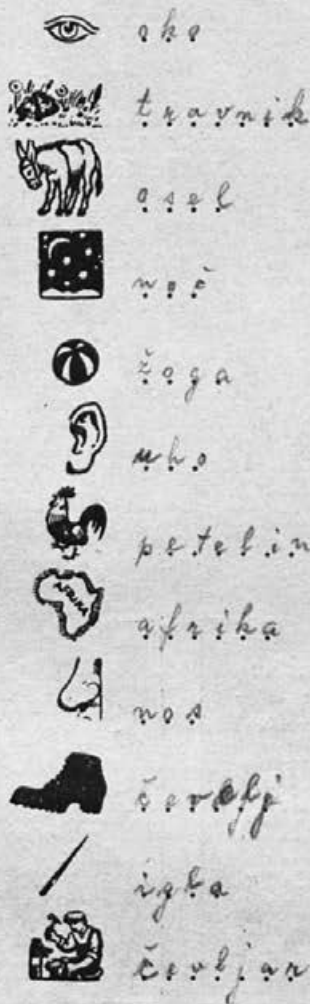 oko
travnik
osel
noč
žoga
uho
petelin
AFRIKA
afrika
nos
čevelj
igla
čevljar